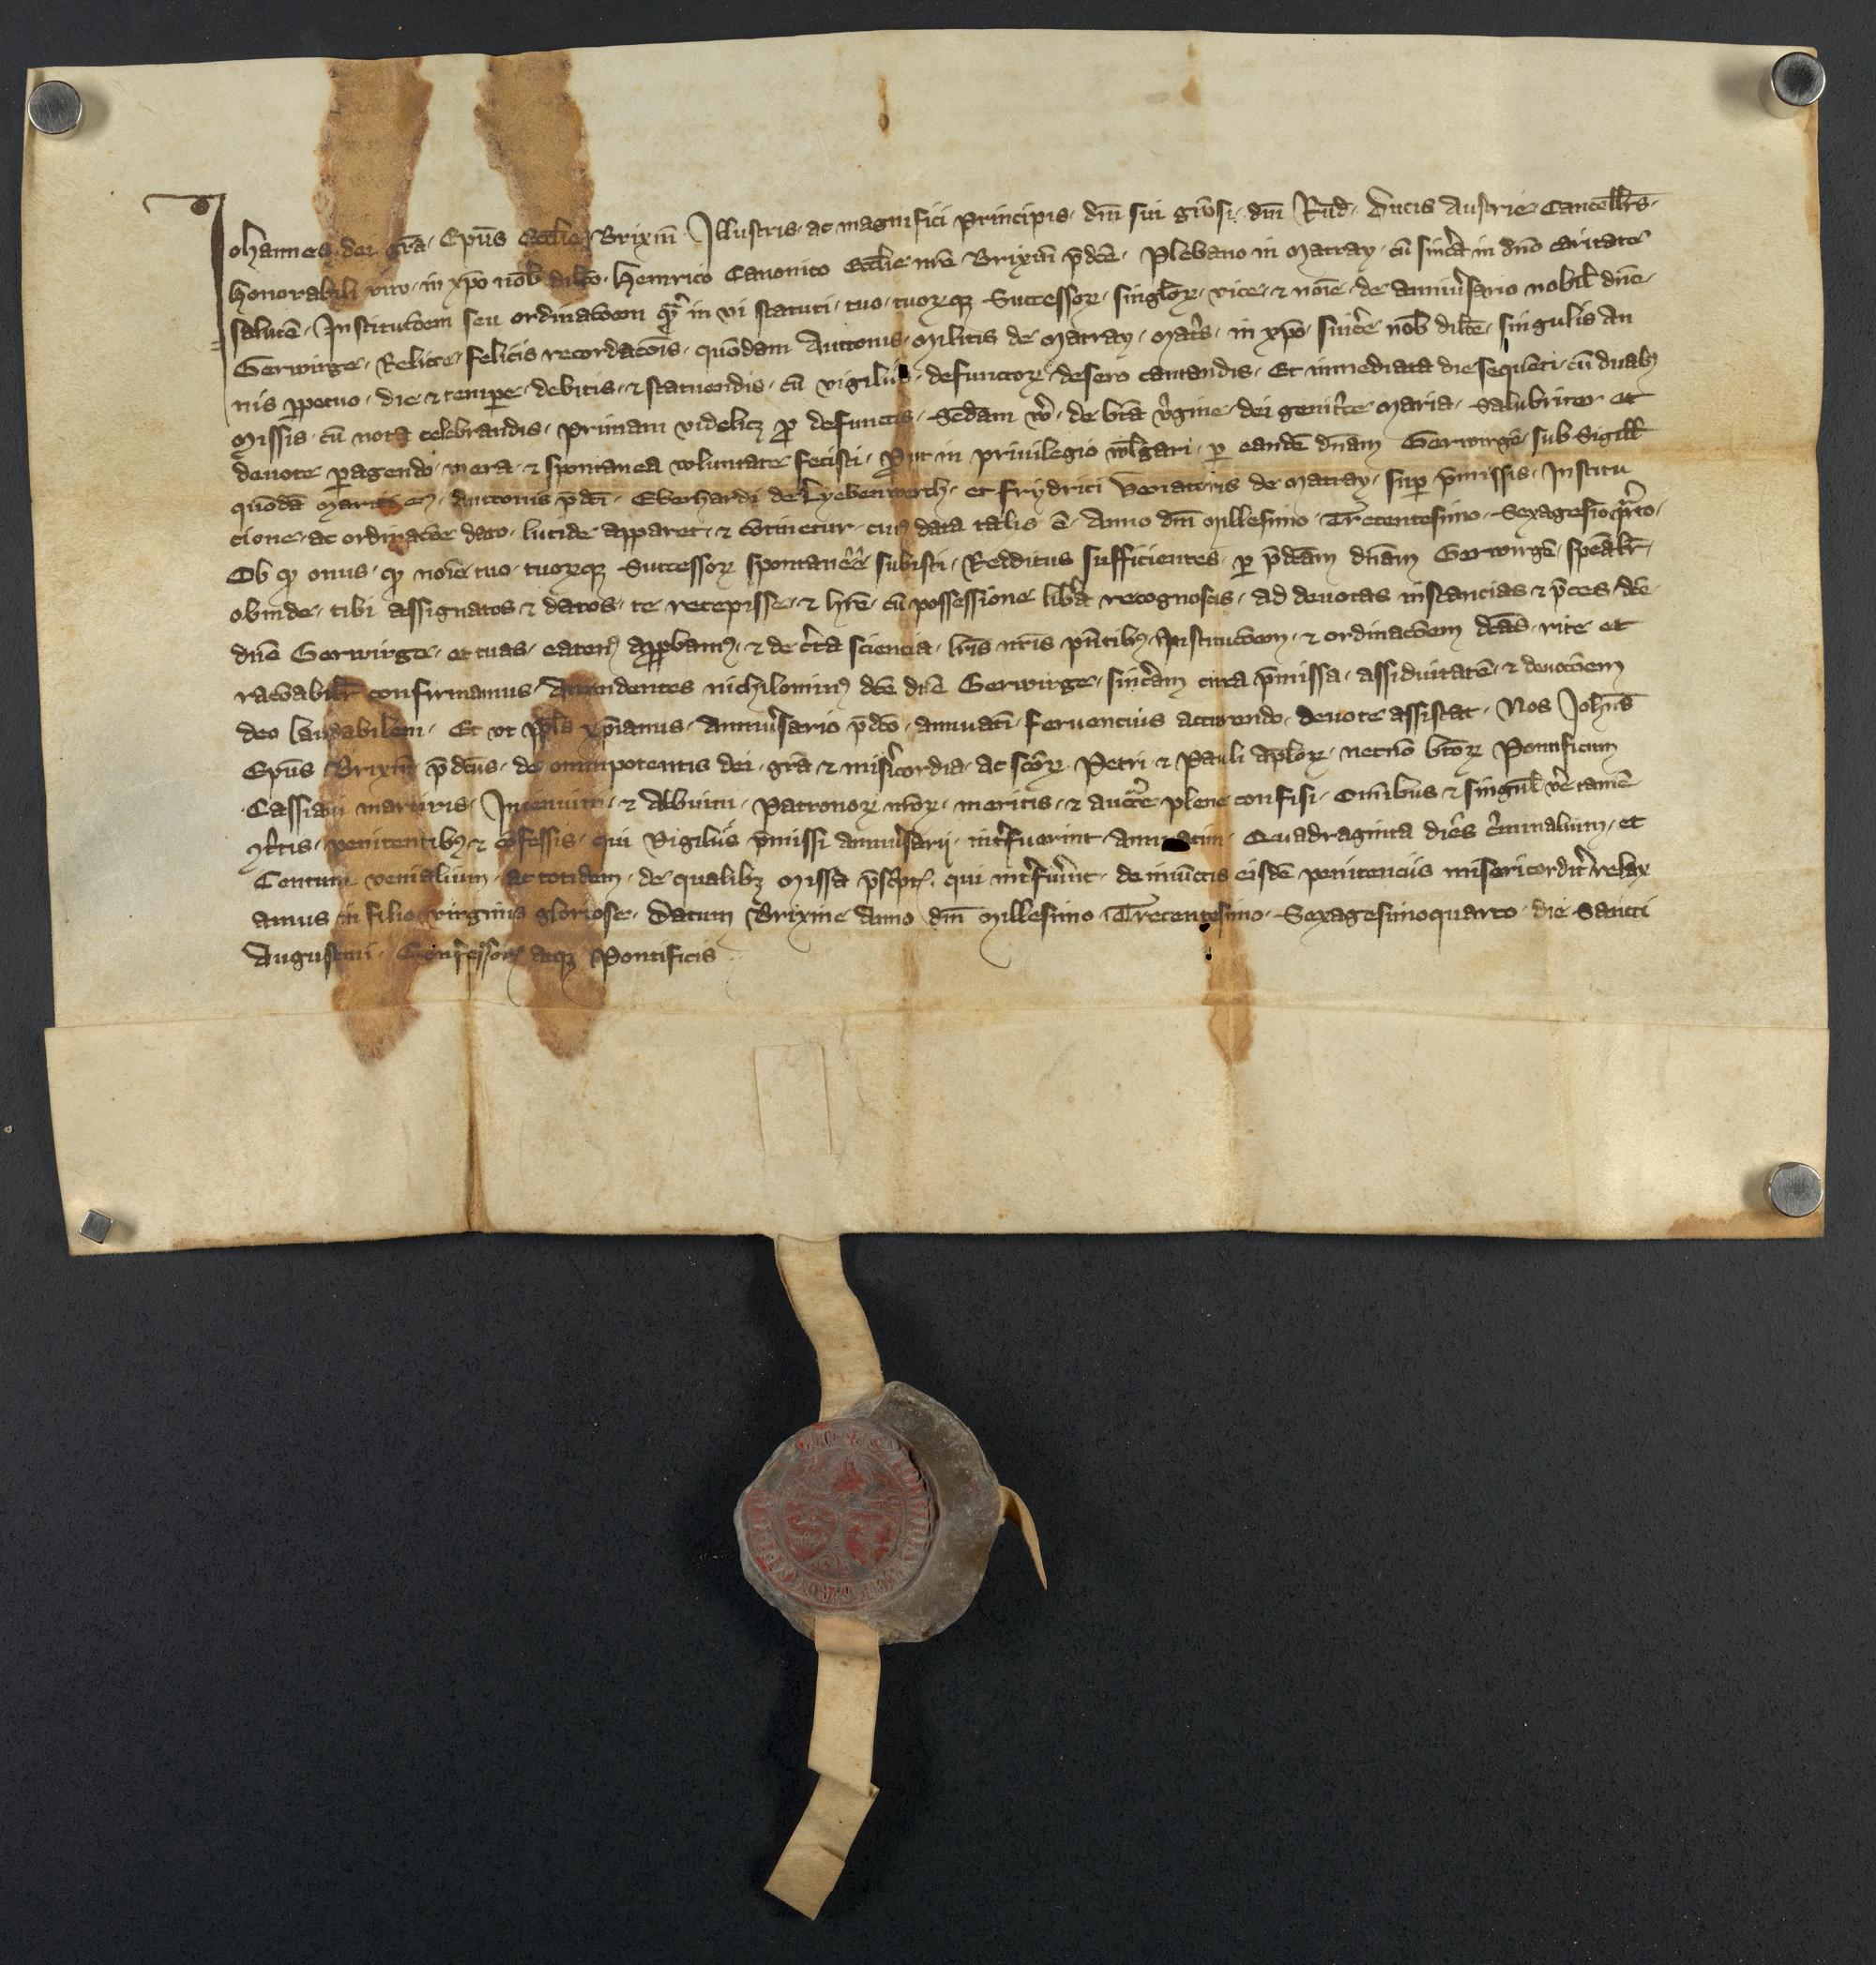 Johannes dei gr̄a Ep̄us Ecc̄lie Brixin̄ Illustris ac magnifici principis dn̄i sui gr̄osi dn̄i Rud̄ Ducis Austrie Cancell̄rs
honorabili viro in xp̄o nob̄ dilc̄o Heinrico Canonico Ecc̄lie nr̄e Brixin̄ p̄dc̄e Plebano in Matray cū sinc̄a in dn̄o caritate
salutē Institucōem seu ordinacōem in vi statuti tuo tuorꝗ Successoꝝ singl̄oꝝ vice ⁊ noīe de anniv̄sario nobil̄ dn̄e
Gerwirge Relicte felicis recordacōis quōdam Auttonis militis de Matray in xp̄o sinc̄e nob̄ dilc̄e singulis an
nis ꝑpetuo die ⁊ tempe debitis ⁊ statuendis cū vigiliis defunctoꝝ de sero cantandis Et immediata die sequēti cū duabꝰ
missis cū nota celebrandis primam videlicꝫ ꝓ defunctis Sc̄dam v̄o de bt̄a v̄gine dei genit̄ce Maria salubriter et
devote ꝑagendo mera ⁊ spontanea voluntate fecisti ꝓut in privilegio wlgari ꝑ eandē dn̄am Gerwirgē sub Sigill̄
quōdā Auttonis p̄dc̄i Eberhardi de Lyebenwerch et Frydrici Venatoris de Matray suꝑ p̄missis Institu
cione ac ordinacōe dato lucide apparet ⁊ ꝯtinetur cuiꝰ data talis ē Anno dn̄i Millesimo Trecentesimo Sexagesioqᵃrto
Ob qꝫ onus qꝫ noīe tuo tuorꝗ Successoꝝ subisti Redditus sufficientes ꝑ p̄dc̄am dn̄am Gerwirgē sp̄eal̄r
obinde tibi assignatos ⁊ datos te recepisse ⁊ hr̄e cū possessione lib̄a recognoscis ad devotas instancias ⁊ p̄ces dc̄e
dn̄e Gerwirge et tuas eatenꝰ apꝓbamꝰ ⁊ de c̄ta sciencia lr̄is nr̄is pn̄tibꝰ Institucōem ⁊ ordinacōem dc̄as rite et
racōabilr̄ confirmamus Attendentes nichilominꝰ dc̄e dn̄e Gerwirge sinc̄am circa p̄missa assiduitatē ⁊ devocōem
deo laudabilem Et ut pp̄ls xp̄ianus Anniv̄sario p̄dc̄o annuatī fervencius accurendo devote assistat Nos Joh̄ns
Ep̄us Brixin̄ p̄dc̄us de omnipotentis dei gr̄a ⁊ mis̄icordia ac sc̄oꝝ Petri ⁊ Pauli ap̄loꝝ necnō bt̄oꝝ Pontificum
Cassiani martiris Ingenuini ⁊ Albuini patronoꝝ nr̄oꝝ meritis ⁊ auct̄te plene confisi Omībus ⁊ singul̄ v̄e tamē
ꝯt̄tis penitentibꝰ ⁊ ꝯfessis qui Vigiliis p̄missi anniv̄sarii int̄fuerint Annuatim Quadraginta dies c̄minalium et
Centum venialium ac totidem de qualibꝫ Missa p̄scp̄t̄ qui int̄fu̅int de iniūctis eisdē penitenciis misericordit̄ relax
amus in filio virginis gloriose Datum Brixine Anno dn̄i Millesimo Trecentesimo Sexagesimoquarto die Sancti
Augustini Confessoris atꝗ Pontificis